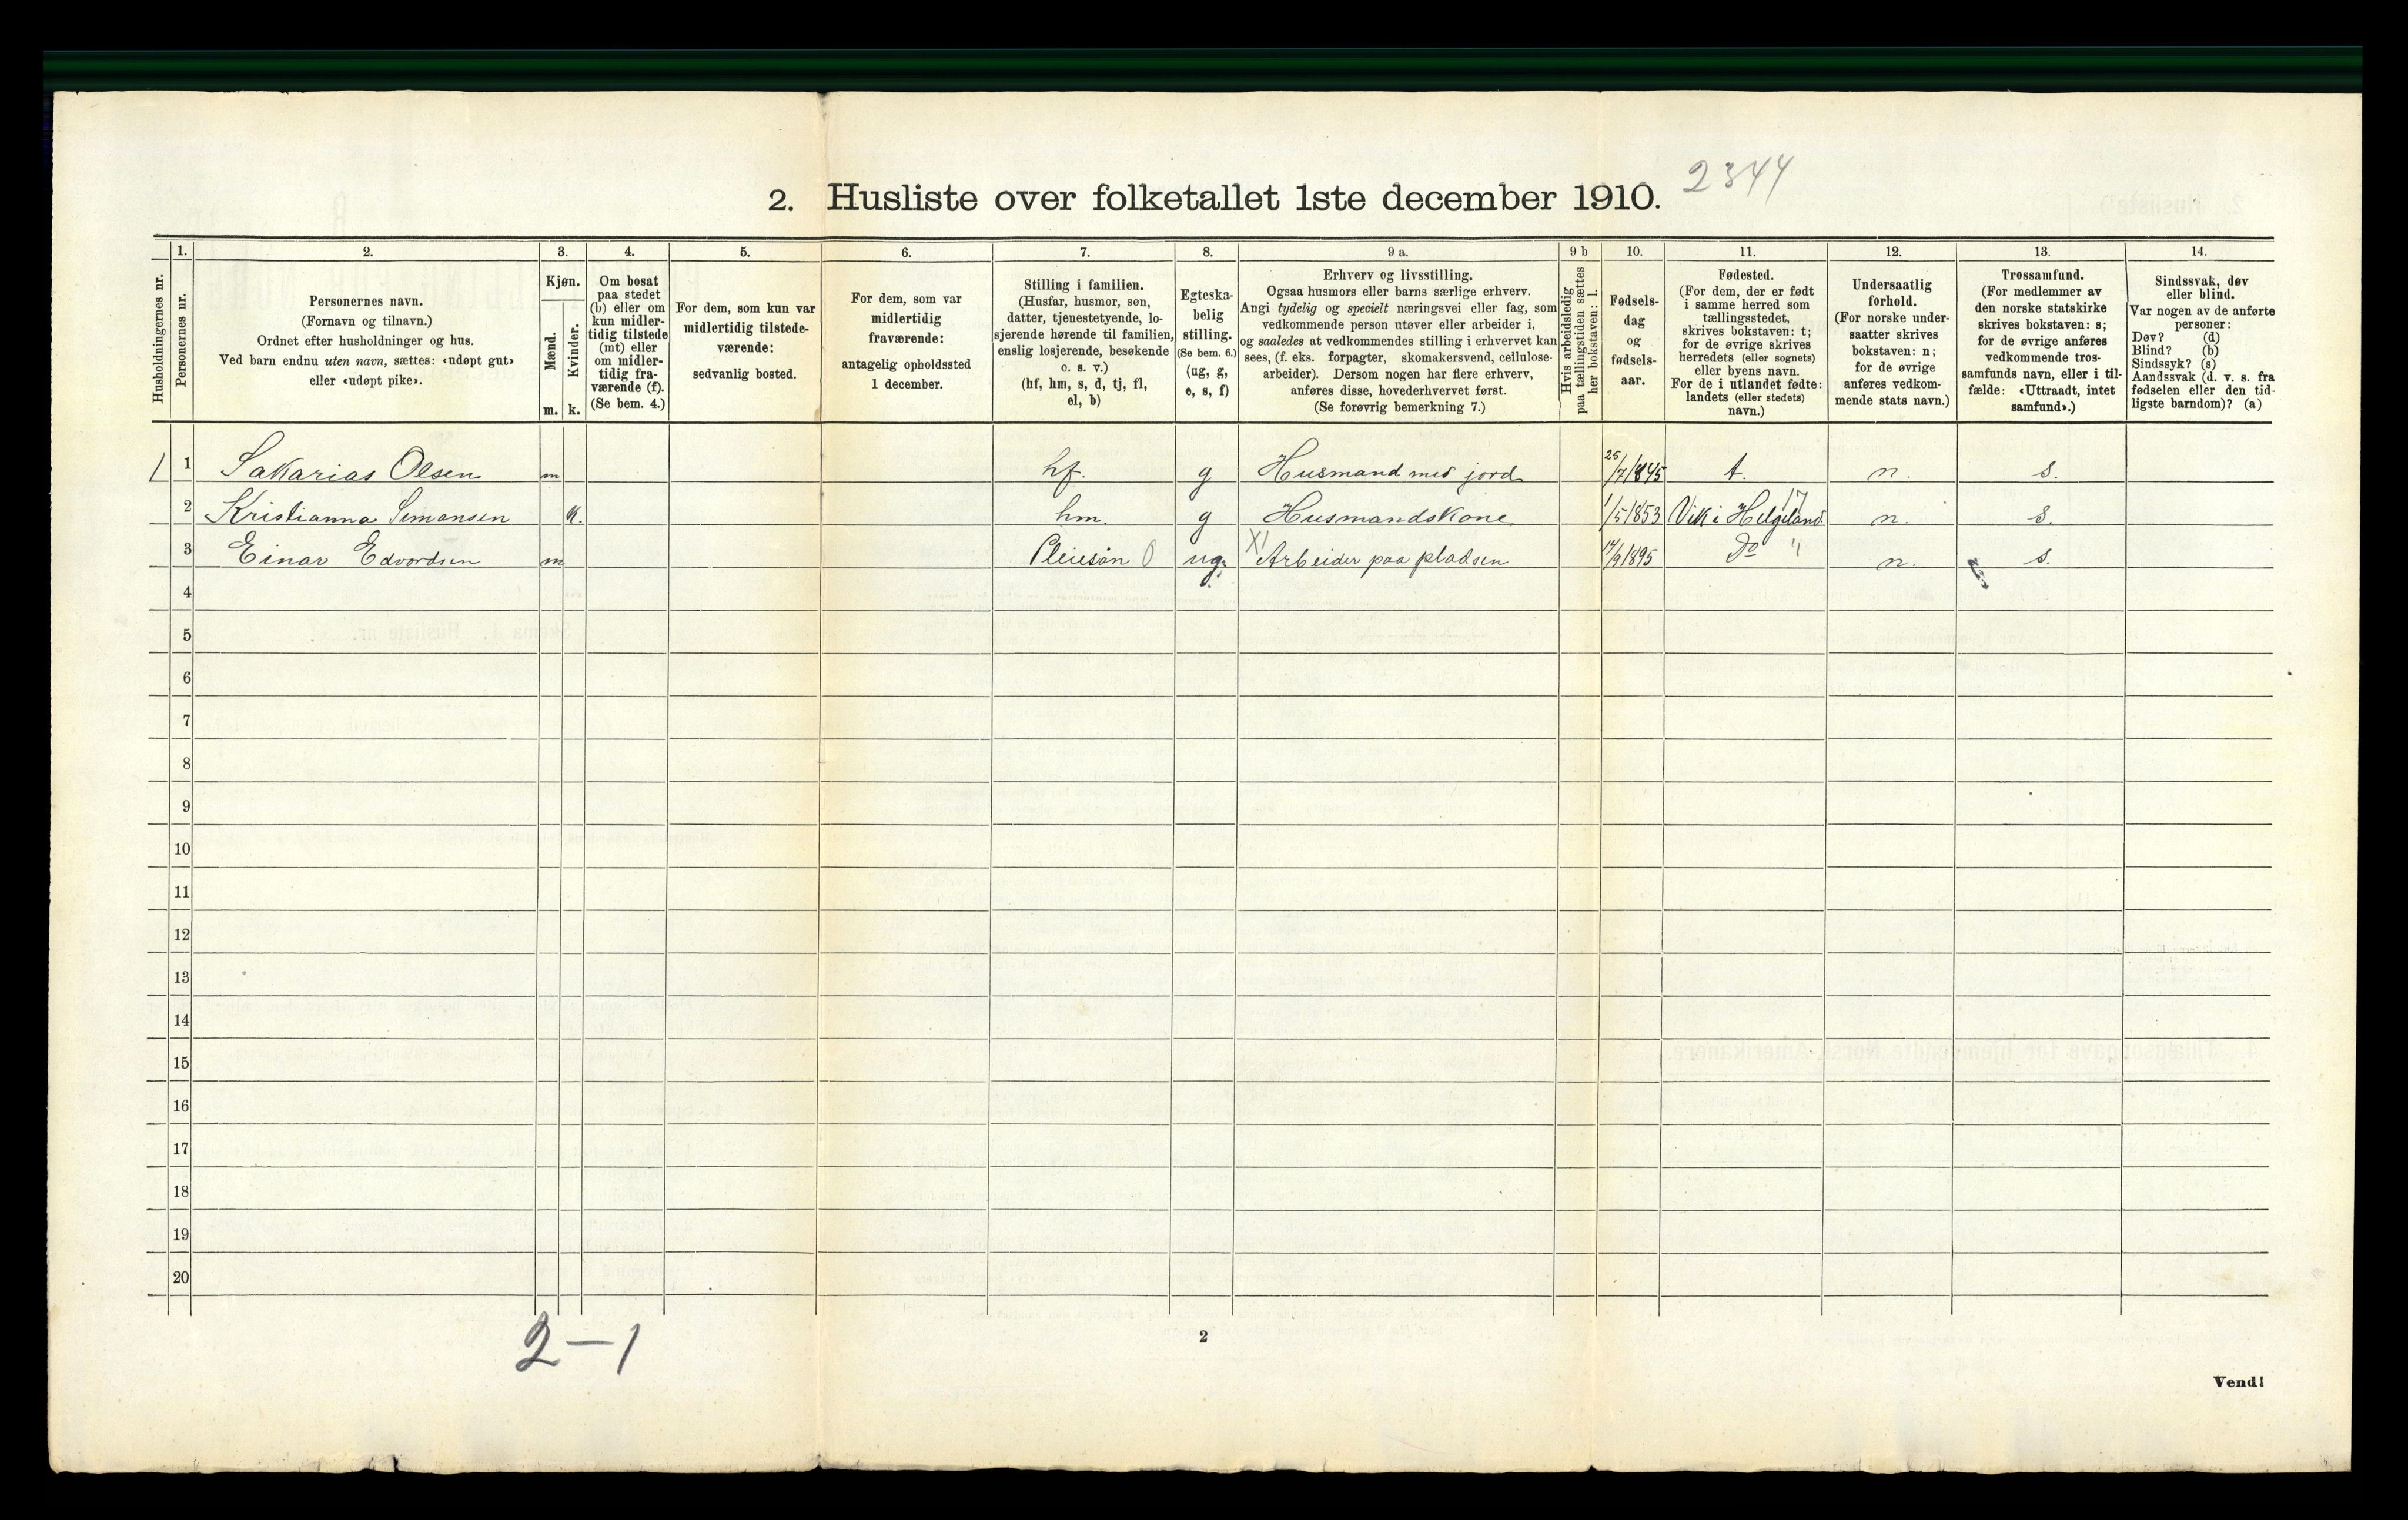 2344
2. Husliste over folketallet 1ste december 1910.
Husholdningernes nr.
1.
Personernes nr.
2.
Personernes navn.
(Fornavn og tilnavn.)
Ordnet efter husholdninger og hus.
Ved barn endnu uten navn, sættes: «udøpt gut»
eller «udøpt pike».
3.
Kjøn.
Mænd.
Kvinder.
m. k.
4.
Om bosat
paa stedet
(b) eller om
kun midler-
tidig tilstede
(mt) eller
om midler-
tidig fra-
værende (f).
(Se bem. 4.)
5.
For dem, som kun var
midlertidig tilstede-
værende:
sedvanlig bosted.
6.
For dem, som var
midlertidig
fraværende:
antagelig opholdssted
1 december.
7.
Stilling i familien.
(Husfar, husmor, søn,
datter, tjenestetyende, lo-
sjerende hørende til familien,
enslig losjerende, besøkende
o. s. v.)
(hf, hm, s, d, tj, fl,
el, b)
8.
Egteska-
belig
stilling.
(Se bem. 6.)
(ug, g,
e, s, f)
9 a.
Erhverv og livsstilling.
Ogsaa husmors eller barns særlige erhverv.
Angi tydelig og specielt næringsvei eller fag, som
vedkommende person utøver eller arbeider i,
og saaledes at vedkommendes stilling i erhvervet kan
sees, (f. eks. forpagter, skomakersvend, cellulose-
arbeider). Dersom nogen har flere erhverv,
anføres disse, hovederhvervet først.
(Se forøvrig bemerkning 7.)
9 b
Hvis arbeidsledig
paa tællingstiden sættes
her bokstaven: l.
10.
Fødsels-
dag
og
fødsels-
aar.
11.
Fødested.
(For dem, der er født
i samme herred som
tællingsstedet,
skrives bokstaven: t;
for de øvrige skrives
herredets (eller sognets)
eller byens navn.
For de i utlandet fødte:
landets (eller stedets)
navn.)
12.
Undersaatlig
forhold.
(For norske under-
saatter skrives
bokstaven: n;
for de øvrige
anføres vedkom-
mende stats navn.)
13.
Trossamfund.
(For medlemmer av
den norske statskirke
skrives bokstaven: s;
for de øvrige anføres
vedkommende tros-
samfunds navn, eller i til-
fælde: «Uttraadt, intet
samfund».)
14.
Sindssvak, døv
eller blind.
Var nogen av de anførte
personer:
Døv? (d)
Blind? (b)
Sindssyk? (s)
Aandssvak (d. v. s. fra
fødselen eller den tid-
ligste barndom)? (a)
1 1 Sakarias Olsen m hf. g Husmand med jord 25/7 1845 t. n. s.
2 Kristianna Simonsen k. hm. g Husmandskone 1/5 1853 Vik i Helgeland 17 n. s.
3 Einar Edvordsen m Pleiesøn 0 ug. XI Arbeider paa pladsen 14/9 1895 Do " n. s.
4
5
6
7
8
9
10
11
12
13
14
15
16
17
18
19
20
2-1
2
Vend!